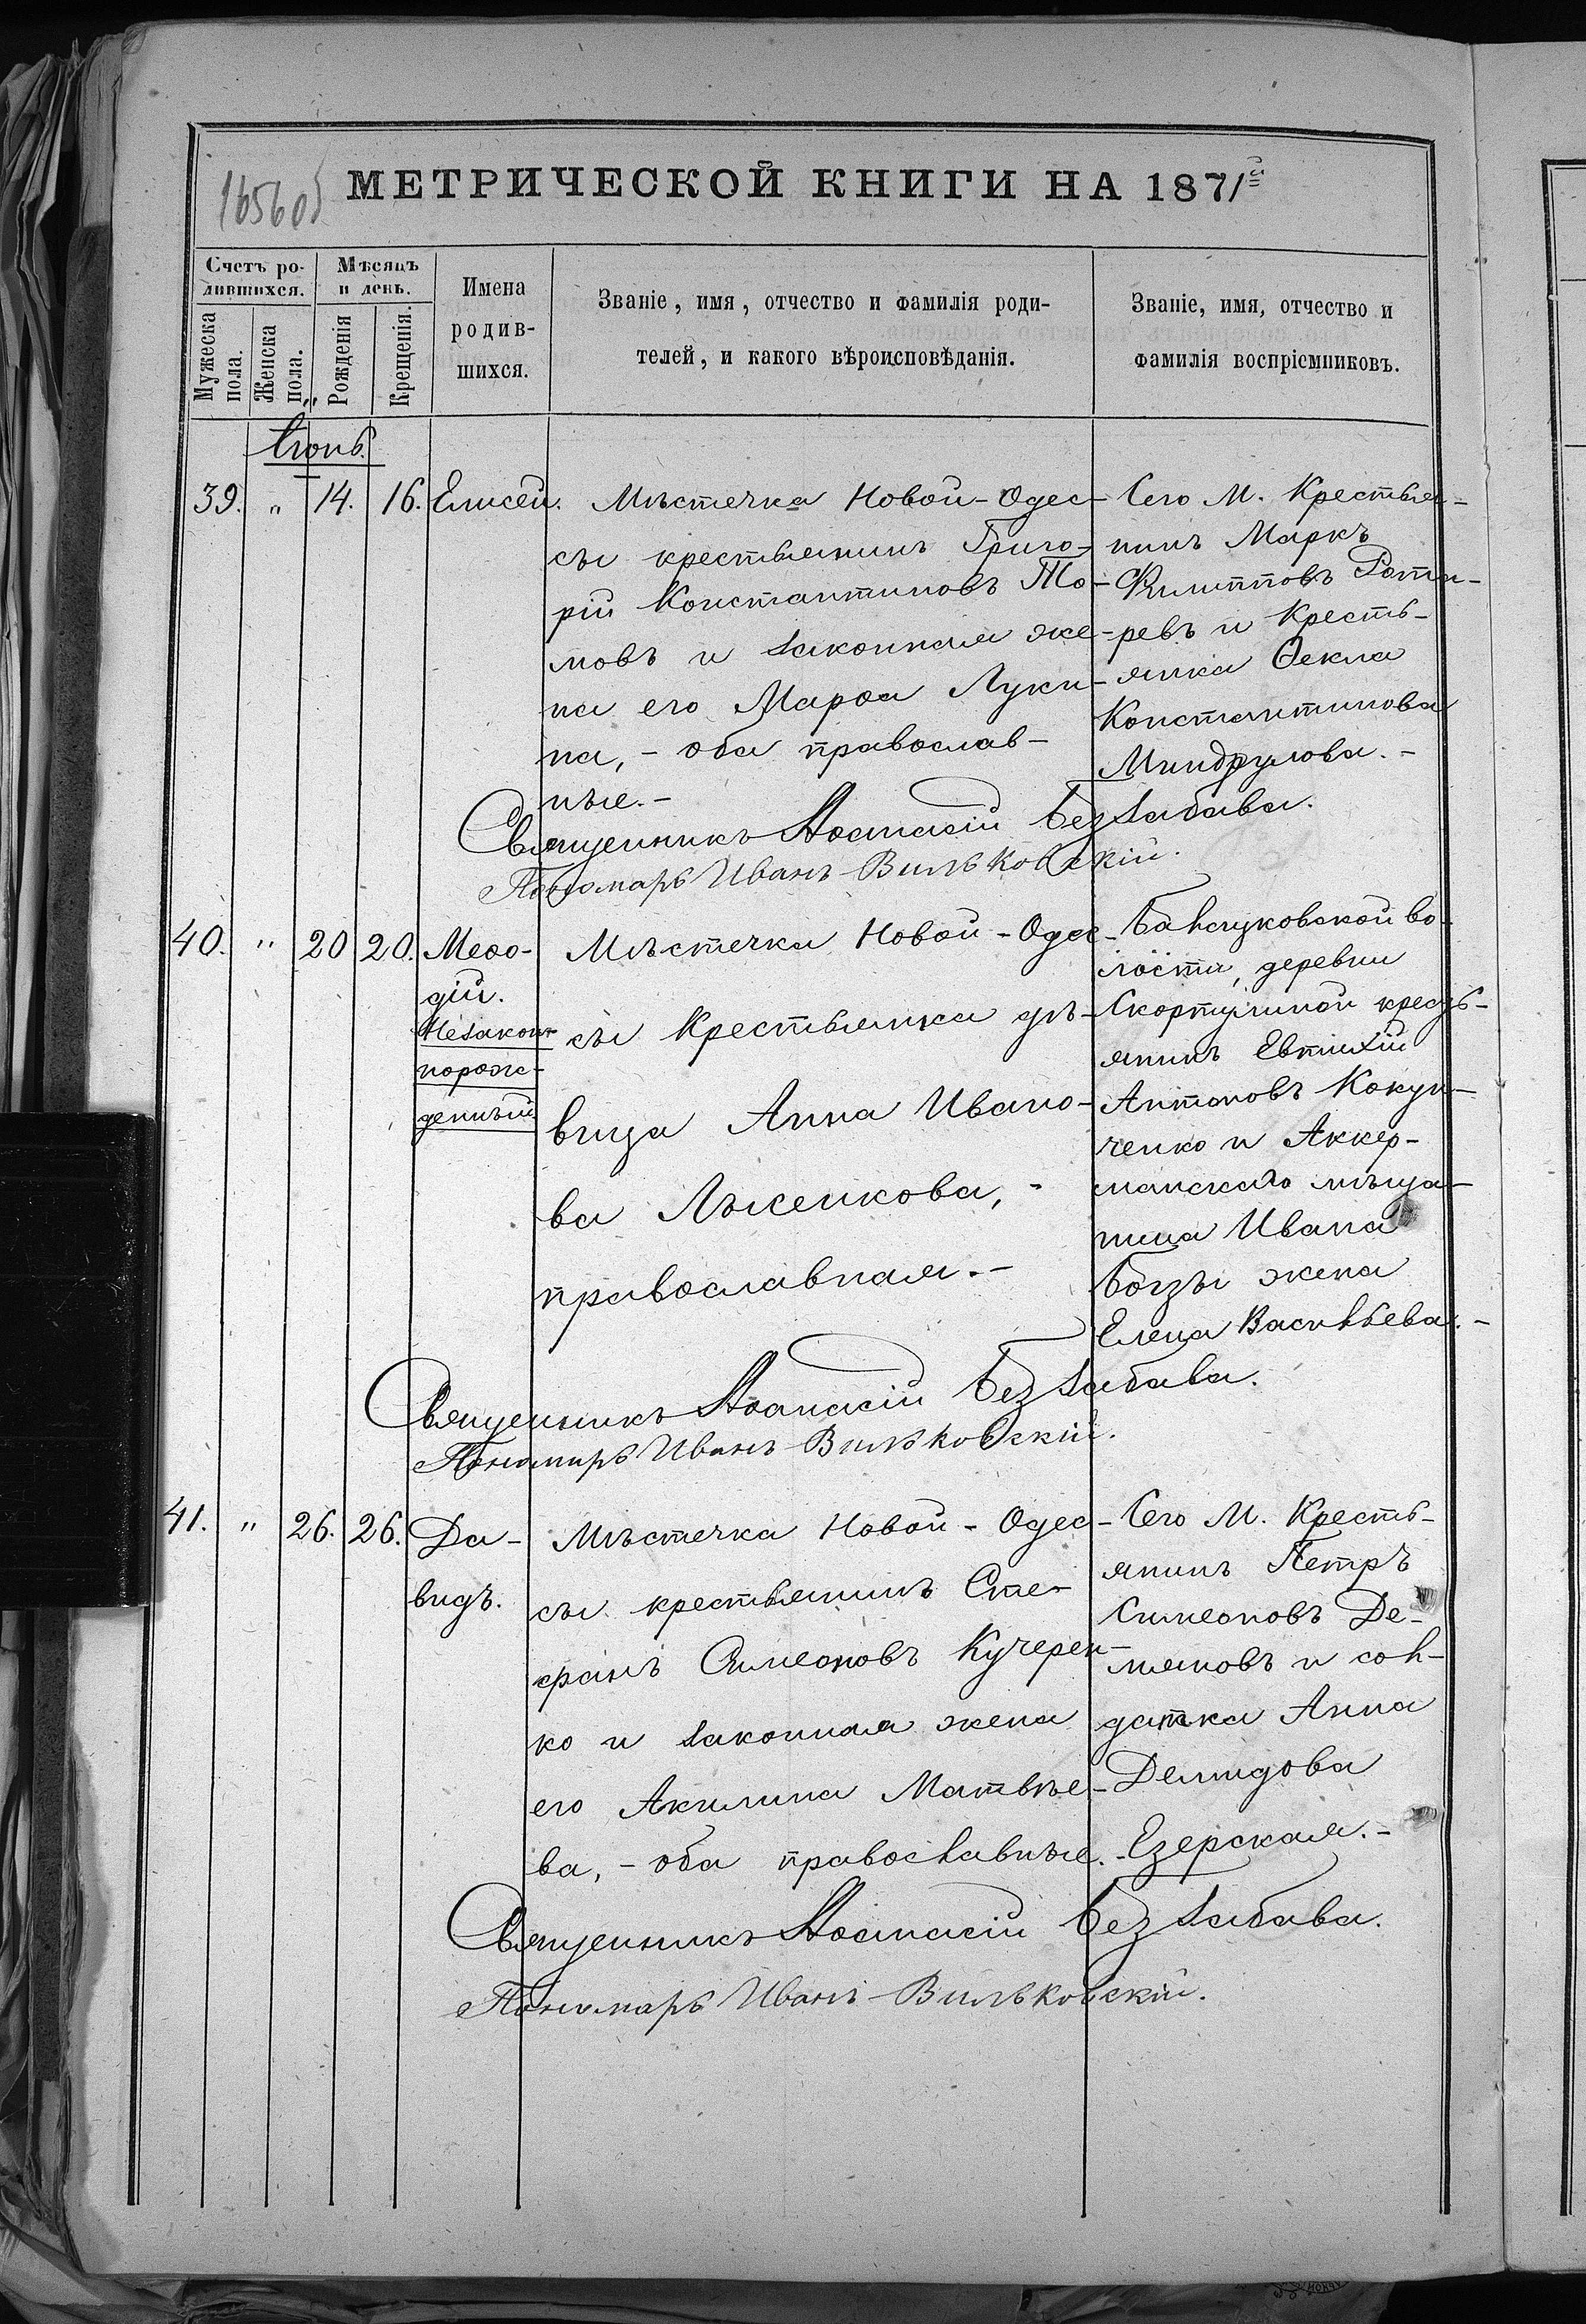 165605
МЕТРИЧЕСКОЙ КНИГИ НА 1871й
Счетъ ро-
дившихся.
Мѣсяцъ
и день.
Мужеска
пола.
Женска
пола.
Рожденія
Крещенія.
Имена
родив-
шихся.
Званіе, имя, отчество и фамилія роди-
телей, и какого вѣроисповѣданія.
Званіе, имя, отчество и
фамилія воспріемниковъ.
Іюнь.
39. " 14. 16. Елисей.
Мѣстечка Новой-Одес-
сы крестьянинъ Григо-
рій Константиновъ То-
мовъ и законная же-
на его Марѳа Луки-
на, - оба православ-
ные.-
Сего М. Крестья-
нинъ Маркъ
Филипповъ Рота-
ревъ и Кресть-
янка Ѳекла
Константинова
Миндрулова.-
Священникъ Аѳанасій Беззабава.
Пономарь Иванъ Вильковскій.
40. " 20 20. Меѳо-
дій.
Незакон-
норож-
денный.
Мѣстечка Новой-Одес-
сы Крестьянка дѣ-
вица Анна Ивано-
ва Лысенкова,-
православная.-
Балчуковской во-
лости, деревни
Скорпуриной кресть-
янинъ Евтихій
Антоновъ Кокун-
ченко и Аккер-
манскаго мѣща-
нина Ивана
Богзы жена
Елена Васильева.-
Священникъ Аѳанасій Беззабава.
Пономарь Иванъ Вильковскій.
41. " 26. 26. Да-
видъ.
Мѣстечка Новой-Одес-
сы крестьянинъ Сте-
фанъ Симеоновъ Кучерен-
ко и законная жена
его Акилина Матвѣе-
ва, - оба православные.-
Сего М. Кресть-
янинъ Петръ
Симеоновъ Де-
мяновъ и сол-
датка Анна
Демидова
Езерская.-
Священникъ Аѳанасій Беззабава.
Пономарь Иванъ Вильковскій.